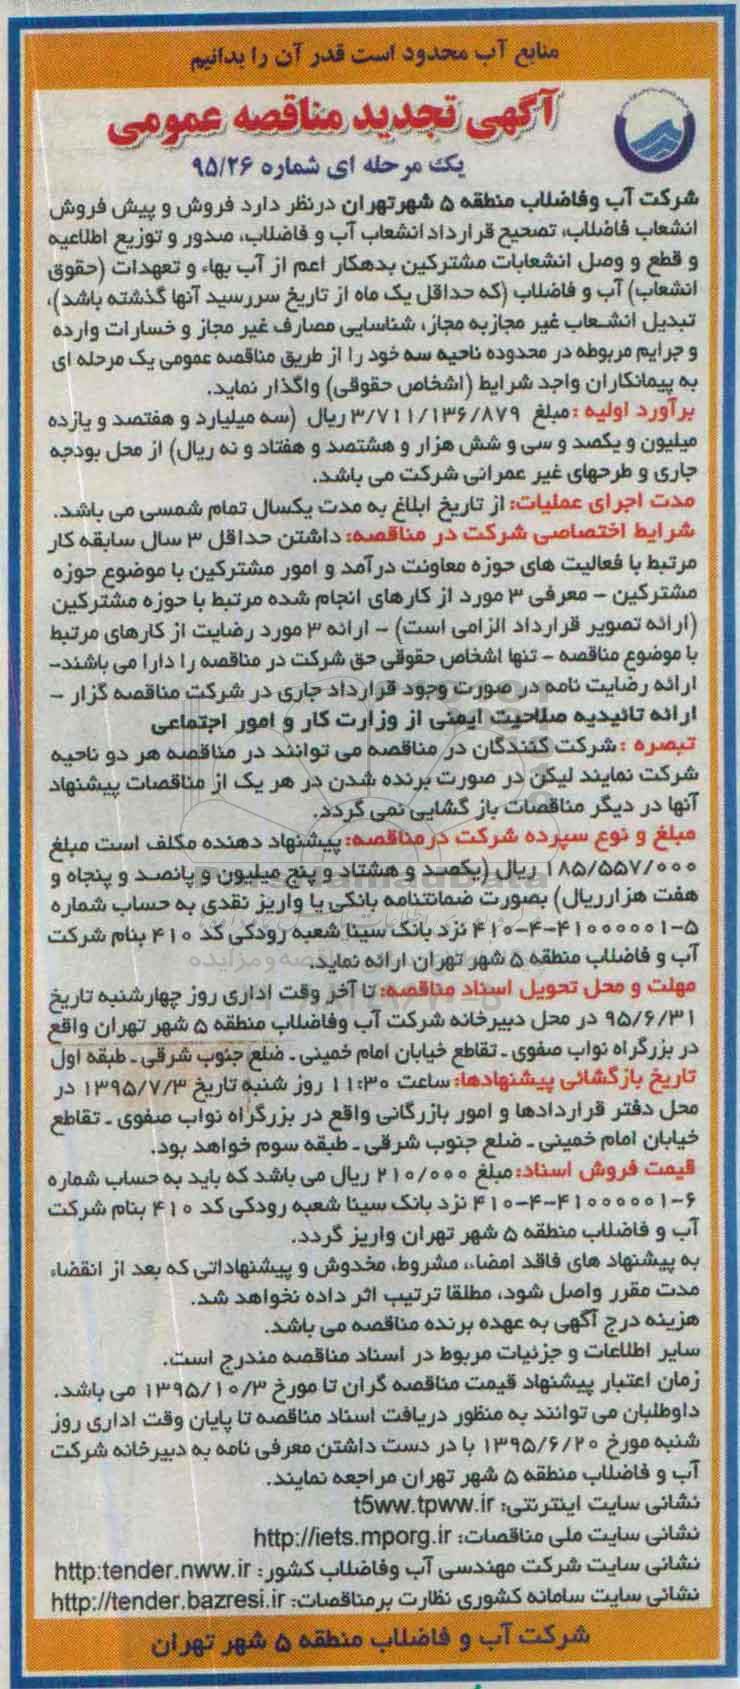 منابع آب محدود است قدر آن را بدانیم
آگهی تجدید مناقصه عمومی
یک مرحله ای شماره ۹۵/۲۶
شرکت آب وفاضلاب منطقه ۵ شهرتهران درنظر دارد فروش و پیش فروش
انشعاب فاضلاب، تصحیح قرارداد انشعاب آب و فاضلاب، صدور و توزیع اطلاعیه
و قطع و وصل انشعابات مشترکین بدهکار اعم از آب بهاء و تعهدات (حقوق
انشعاب) آب و فاضلاب (که حداقل یک ماه از تاریخ سررسید آنها گذشته باشد)،
تبدیل انشعاب غیر مجازبه مجاز، شناسایی مصارف غیر مجاز و خسارات وارده
و جرایم مربوطه در محدوده ناحیه سه خود را از طریق مناقصه عمومی یک مرحله ای
به پیمانکاران واجد شرایط (اشخاص حقوقی) واگذار نماید.
برآورد اولیه : مبلغ ۳/۷۱۱/۱۳۶/۸۷۹ ریال (سه میلیارد و هفتصد و یازده
میلیون و یکصد و سی و شش هزار و هشتصد و هفتاد و نه ریال) از محل بودجه
جاری و طرحهای غیر عمرانی شرکت می باشد.
مدت اجرای عملیات: از تاریخ ابلاغ به مدت یکسال تمام شمسی می باشد.
شرایط اختصاصی شرکت در مناقصه: داشتن حداقل ۳ سال سابقه کار
مرتبط با فعالیت های حوزه معاونت درآمد و امور مشترکین با موضوع حوزه
مشترکین - معرفی ۳ مورد از کارهای انجام شده مرتبط با حوزه مشترکین
(ارائه تصویر قرارداد الزامی است) - ارائه ۳ مورد رضایت از کارهای مرتبط
با موضوع مناقصه - تنها اشخاص حقوقی حق شرکت در مناقصه را دارا می باشند-
ارائه رضایت نامه در صورت وجود قرارداد جاری در شرکت مناقصه گزار -
ارائه تائیدیه صلاحیت ایمنی از وزارت کار و امور اجتماعی
تبصره : شرکت کنندگان در مناقصه می توانند در مناقصه هر دو ناحیه
شرکت نمایند لیکن در صورت برنده شدن در هر یک از مناقصات پیشنهاد
آنها در دیگر مناقصات باز گشایی نمی گردد.
مبلغ و نوع سپرده شرکت درمناقصه: پیشنهاد دهنده مکلف است مبلغ
۱۸۵/۵۵۷/۰۰۰ ریال (یکصد و هشتاد و پنج میلیون و پانصد و پنجاه و
هفت هزارریال) بصورت ضمانتنامه بانکی یا واریز نقدی به حساب شماره
۴۱۰-۴-۴۱۰۰۰۰۰۱-۵ نزد بانک سینا شعبه رودکی کد ۴۱۰ بنام شرکت
آب و فاضلاب منطقه ۵ شهر تهران ارائه نماید.
مهلت و محل تحویل اسناد مناقصه: تا آخر وقت اداری روز چهارشنبه تاریخ
۹۵/۶/۳۱ در محل دبیرخانه شرکت آب وفاضلاب منطقه ۵ شهر تهران واقع
در بزرگراه نواب صفوی ـ تقاطع خیابان امام خمینی ـ ضلع جنوب شرقی ـ طبقه اول
تاریخ بازگشائی پیشنهادها: ساعت ۱۱:۳۰ روز شنبه تاریخ ۱۳۹۵/۷/۳ در
محل دفتر قراردادها و امور بازرگانی واقع در بزرگراه نواب صفوی ـ تقاطع
خیابان امام خمینی ـ ضلع جنوب شرقی ـ طبقه سوم خواهد بود.
قیمت فروش اسناد: مبلغ ۲۱۰/۰۰۰ ریال می باشد که باید به حساب شماره
۴۱۰-۴-۴۱۰۰۰۰۰۱-۶ نزد بانک سینا شعبه رودکی کد ۴۱۰ بنام شرکت
آب و فاضلاب منطقه ۵ شهر تهران واریز گردد.
به پیشنهاد های فاقد امضاء، مشروط، مخدوش و پیشنهاداتی که بعد از انقضاء
مدت مقرر واصل شود، مطلقا ترتیب اثر داده نخواهد شد.
هزینه درج آگهی به عهده برنده مناقصه می باشد.
سایر اطلاعات و جزئیات مربوط در اسناد مناقصه مندرج است.
زمان اعتبار پیشنهاد قیمت مناقصه گران تا مورخ ۱۳۹۵/۱۰/۳ می باشد.
داوطلبان می توانند به منظور دریافت اسناد مناقصه تا پایان وقت اداری روز
شنبه مورخ ۱۳۹۵/۶/۲۰ با در دست داشتن معرفی نامه به دبیرخانه شرکت
آب و فاضلاب منطقه ۵ شهر تهران مراجعه نمایند.
نشانی سایت اینترنتی: t5ww.tpww.ir
نشانی سایت ملی مناقصات: http://iets.mporg.ir
نشانی سایت شرکت مهندسی آب وفاضلاب کشور: http:tender.nww.ir
نشانی سایت سامانه کشوری نظارت برمناقصات: http://tender.bazresi.ir
شرکت آب و فاضلاب منطقه ۵ شهر تهران